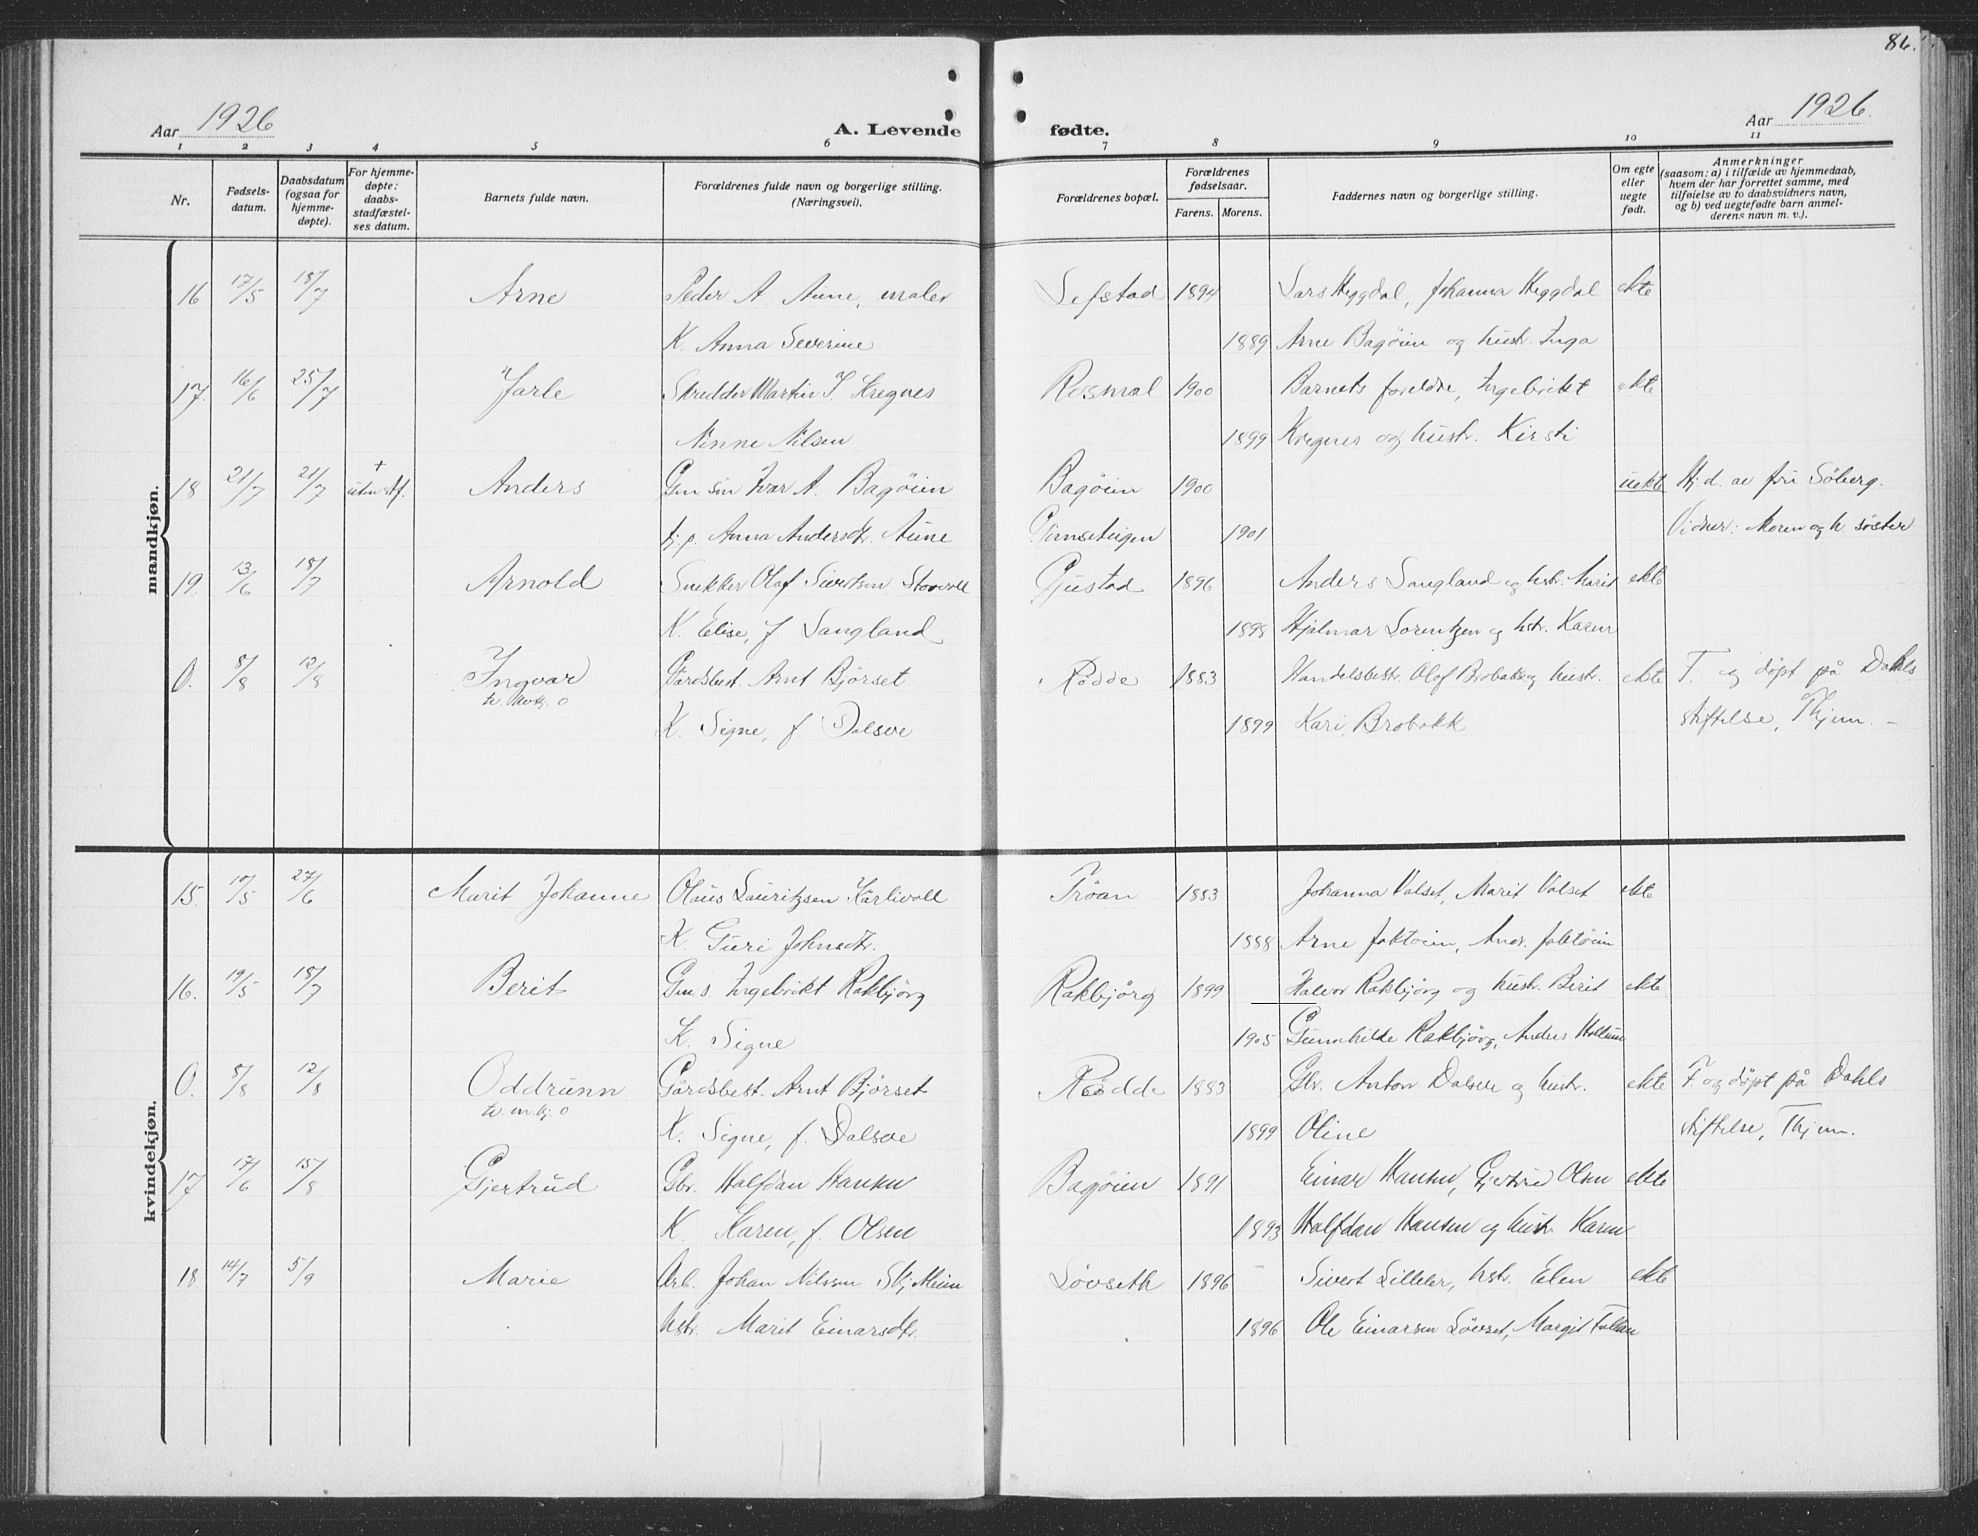 86.
Aar 1926 A. Levende fødte. Aar 1926.
1 2 3 4 5 6 7 8 9 10 11
Nr. Fødsels-datum. Daabsdatum (ogsaa for hjemme-døpte). For hjemme-døpte: daabs-stadfæstel-ses datum. Barnets fulde navn. Forældrenes fulde navn og borgerlige stilling. (Næringsvei). Forældrenes bopæl. Forældrenes fødselsaar. Farens. Morens. Faddernes navn og borgerlige stilling. Om egte eller uegte født. Anmerkninger (saasom: a) i tilfælde av hjemmedaab, hvem der har forrettet samme, med tilføielse av to daabsvidners navn, og b) ved uegtefødte barn anmel-derens navn m. v.).
mandkjøn.
16 17/5 18/7 Arne Peder A. Aune, maler 1894 Lars Heggdal, Johanna Heggdal ekte
K. Anna Severine 1889 Arne Bagøien og hustr. Inga
17. 16/6 25/7 Jarle Skredder Martin I. Kregnes Rosmal 1900 Barnets foreldre, Ingebrikt ekte
Ninne Nilsen 1899 Kregnes og hustr. Kirsti
18 21/7 21/7 + Anders Gm. søn Ivar A. Bagøien Bagøien 1900 uekte Hj. d. av frü Søberg.
t.p. Anna Andersdtr. Aune 1901 Vidner: Moren og h. søster
19. 13/6 18/7 Arnold Snekker Olaf Sivertsen Storvoll Gjustad 1896 Anders Langland og hstr. Marit ekte
K. Elise, f. Langland 1898 Hjalmar Lorentzen og hstr. Karen
0. 8/8 12/8 Ingvar Gårdsbest. Arnt Bjørset Rødde 1883 Handelsbestr. Olof Brobakk og hustr. ekte F. og døpt på Dahls
K. Signe, f. Dalsve 1899 Kari, Brobakk stiftelse, Thjem. -
kvindekjøn.
15. 17/5 27/6 Marit Johanne Olaus Lauritzsen Kårlivoll Trøan 1883 Johanna Valset, Marit Valset ekte
K. Guri Johnsdtr. 1888 Arne Foktøien, Andr. Foktøien
16. 19/5 18/7 Berit Gm s. Ingebrikt Rakbjørg Rakbjørg 1899 Halvor Rakbjørg og hustr. Berit ekte
K. Signe 1905 Gunnhilde Rakbjørg, Anders Hollum
0. 8/8 12/8 Oddrunn Gårdsbest. Arnt Bjørset Rødde 1883 Gbr. Anton Dalsve og hustr. ekte F. og døpt på Dahls
K. Signe, f. Dalsve 1899 Oline stiftelse, Thjem.
17 17/6 15/8 Gjertrud Gbr. Halfdan Hansen Bagøien 1891 Einar Hansen, Gjertrud Olsen ekte
K. Karen, f. Olsen 1893 Halfdan Hansen og hustr. Karen
18 14/7 5/9 Marie Arb. Johan Nilssen Løvseth 1896 Sivert Lilleler, hstr. Elen ekte
hstr. Marit Einarsdtr. 1896 Ole Einarsen Løvset, Margit